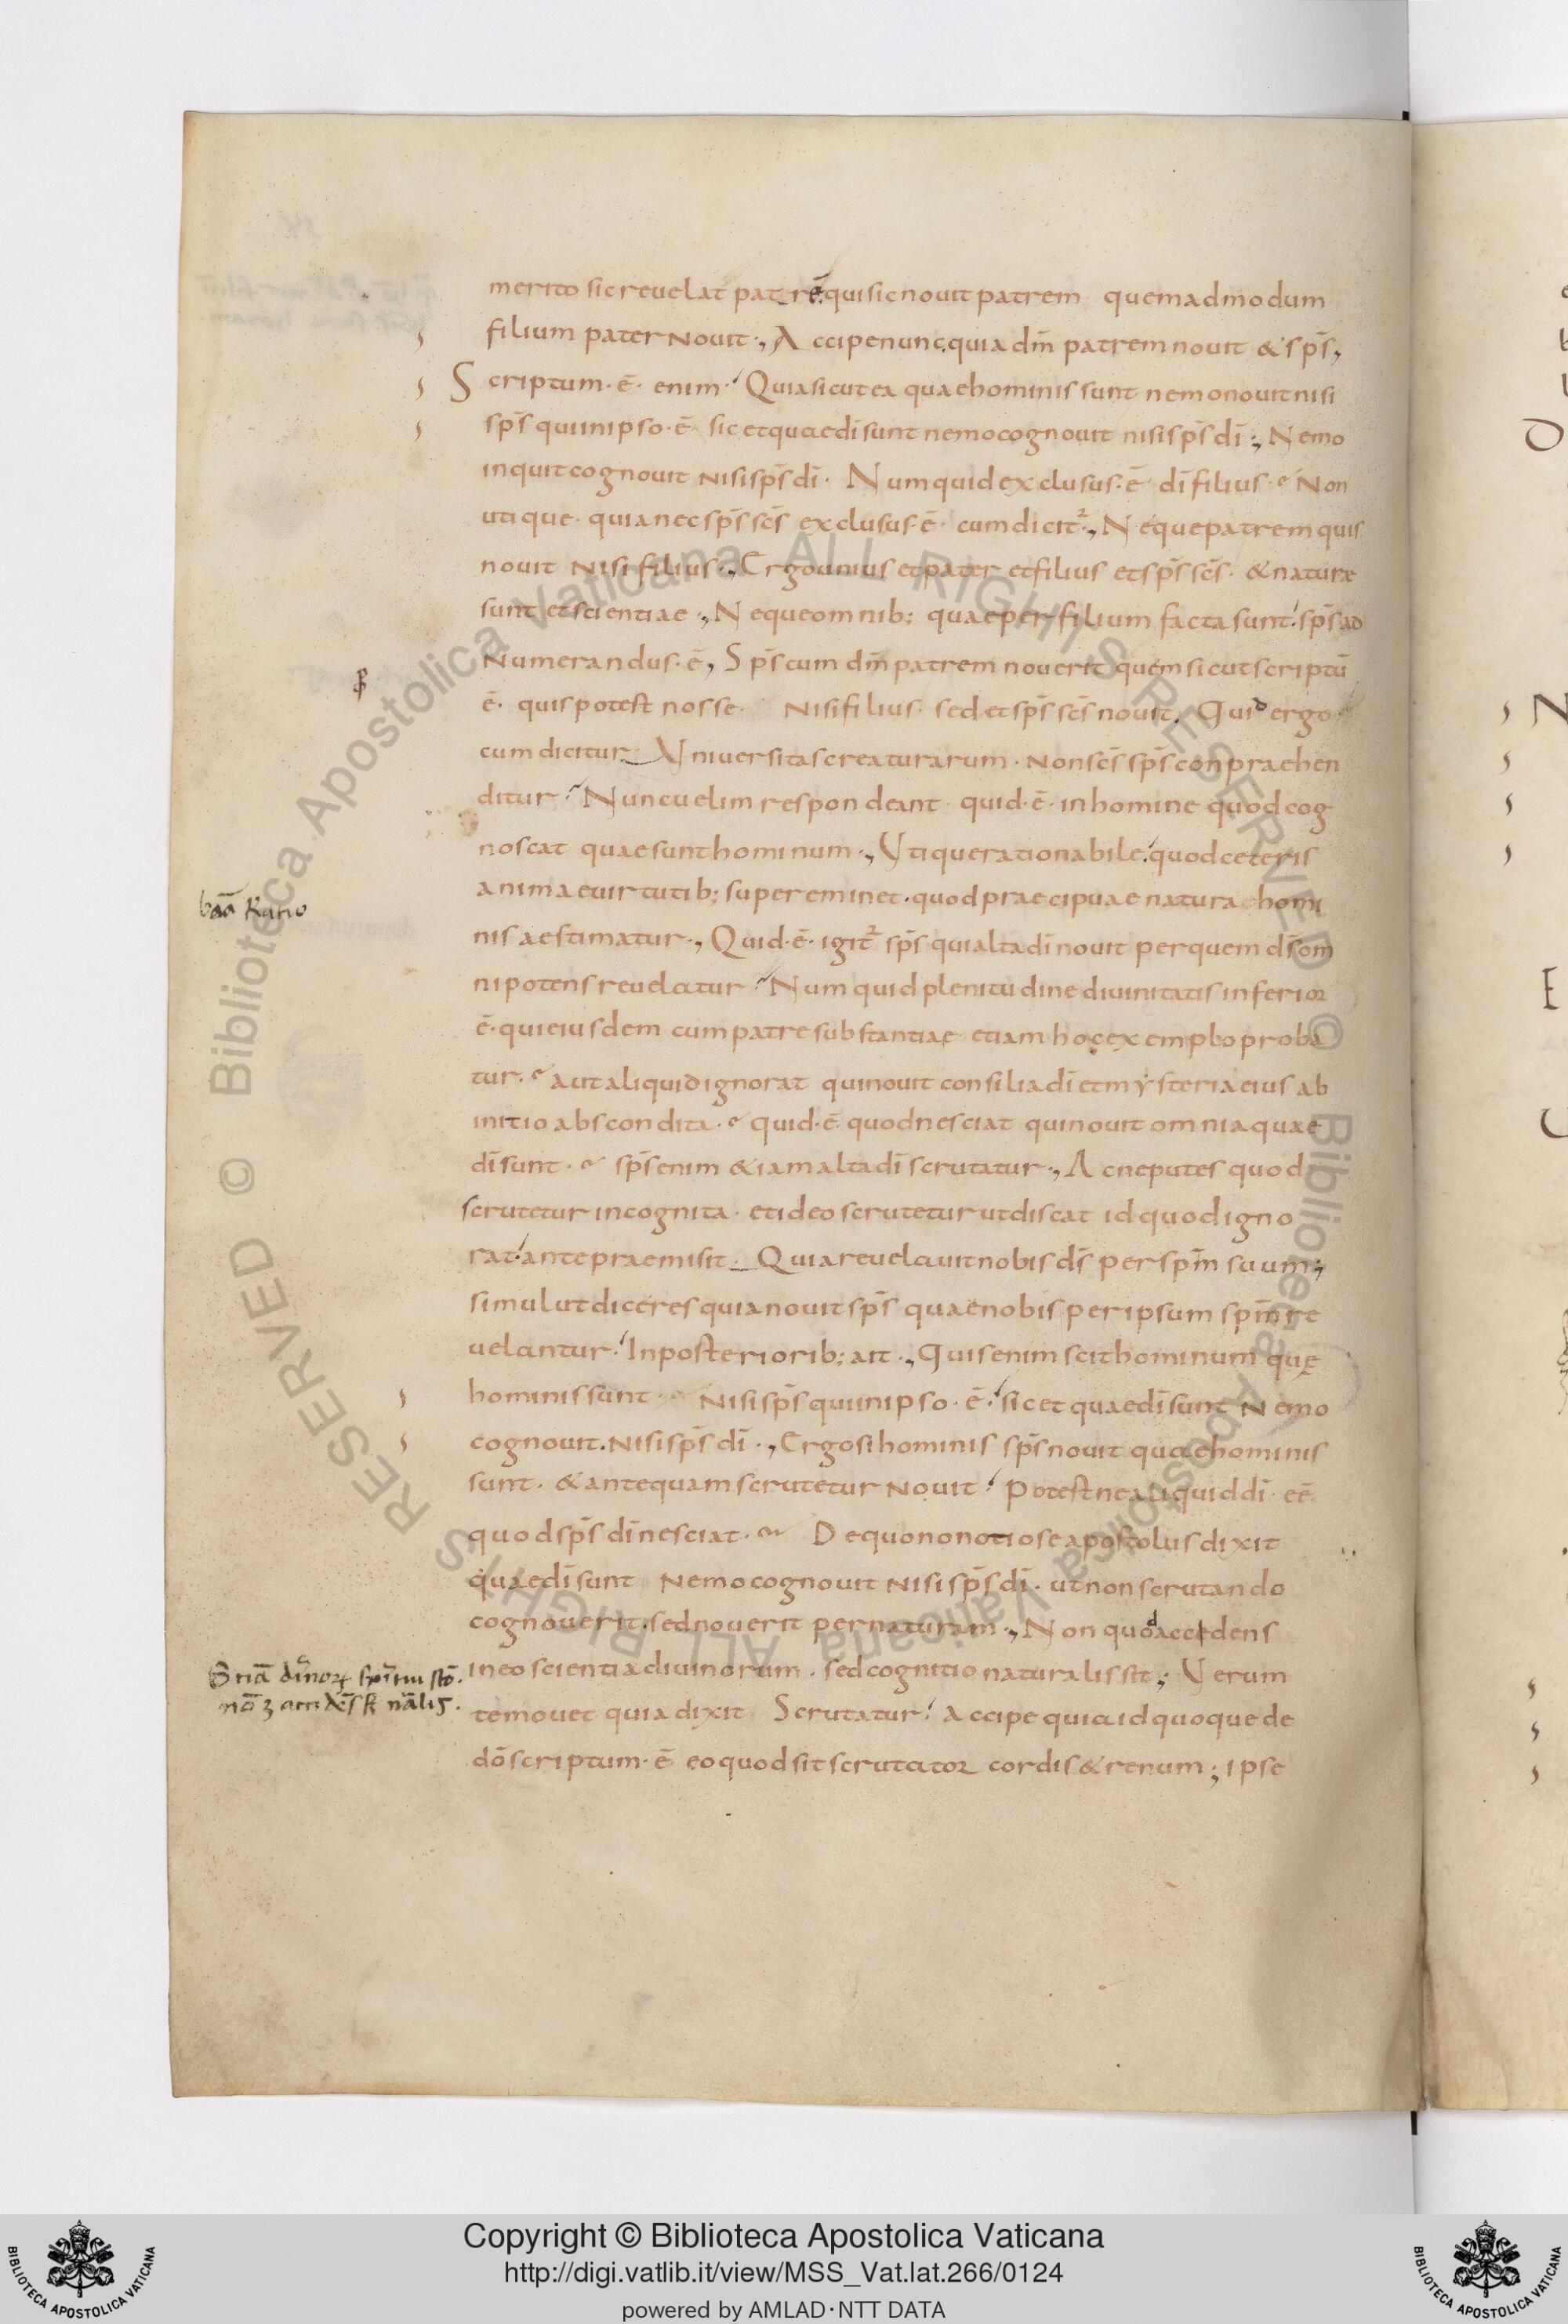 merito sic reuelat patrē qui sic nouit patrem quemadmodum
filium pater nouit ., Accipe nunc quia dm̄ patrem nouit & sps̄,
Scriptum · ē · enim · Quia sicut ea quae hominis sunt nemo nouit nisi
sps̄ qui in ipso · ē sic et quae dī sunt nemo cognouit nisi sps̄ dī ., Nemo
inquit cognouit nisi sps̄ dī · Numquid exclusus · ē · dī filius · Non
utique · quia nec sps̄ scs̄ exclusus · ē · cum dicit ., Neque patrem quis
nouit nisi filius ., Ergo unius et pater et filius et sps̄ scs̄ · & naturae
sunt et scientiae ., Neque omnib; quae per filium facta sunt · sps̄ ad
numerandus · ē, Sps̄ cum dm̄ patrem nouerit quem sicut scriptū
ē · quis potest nosse · nisi filius · sed et sps̄ scs̄ nouit. Quid ergo
cum dicitur Uniuersitas creaturarum · non scs̄ sps̄ conpraehen
ditur Nunc uelim respondeant quid · ē · in homine quod cog
noscat quae sunt hominum ., Utique rationabile quod ceteris
animae uirtutib; supereminet · quod praecipuae natura homi
baā Ratio
nis aestimatur ., Quid · ē · igit sps̄ qui alta dī nouit per quem ds̄ om
nipotens reuelatur Numquid plenitudine diuinitatis inferior
ē · qui eiusdem cum patre substantiae etiam hoc exemplo proba
tur · aut aliquid ignorat qui nouit consilia dī et mysteria eius ab
initio abscondita · quid · ē quod nesciat qui nouit omnia quae
dī sunt · sps̄ enim & iam alta dī scrutatur ., Ac ne putes quod
scrutetur incognita · et ideo scrutetur ut discat id quod igno
rat ante praemisit · Quia reuelauit nobis ds̄ per spm̄ suum;
simul ut diceres quia nouit sps̄ quae nobis per ipsum spm̄ re
uelantur · In posteriorib; ait ., Quis enim scit hominum quę
hominis sunt nisi sps̄ qui in ipso · ē · sic et quae dī sunt Nemo
cognouit · nisi sps̄ dī ., Ergo si hominis sps̄ nouit quae hominis
sunt · & antequam scrutetur nouit Potestne aliquid dī · eē
quod sps̄ dī nesciat · De quo non otiose apostolus dixit
quae dī sunt Nemo cognouit nisi sps̄ dī · ut non scrutando
cognouerit · sed nouerit per naturam ., Non quod accedens
in eo scientia diuinorum · sed cognitio naturalis sit; Verum
te mouet quia dixit Scrutatur Accipe quia id quoque de
dō scriptum · ē eo quod sit scrutator cordis & renum; ipse
Copyright © Biblioteca Apostolica Vaticana
http://digi.vatlib.it/view/MSS_Vat.lat.266/0124
powered by AMLAD·NTT DATA
BIBLIOTECA APOSTOLICA VATICANA
BIBLIOTECA APOSTOLICA VATICANA
© Biblioteca Apostolica Vaticana ALL RIGHTS RESERVED © Biblioteca Apostolica Vaticana ALL RIGHTS RESERVED